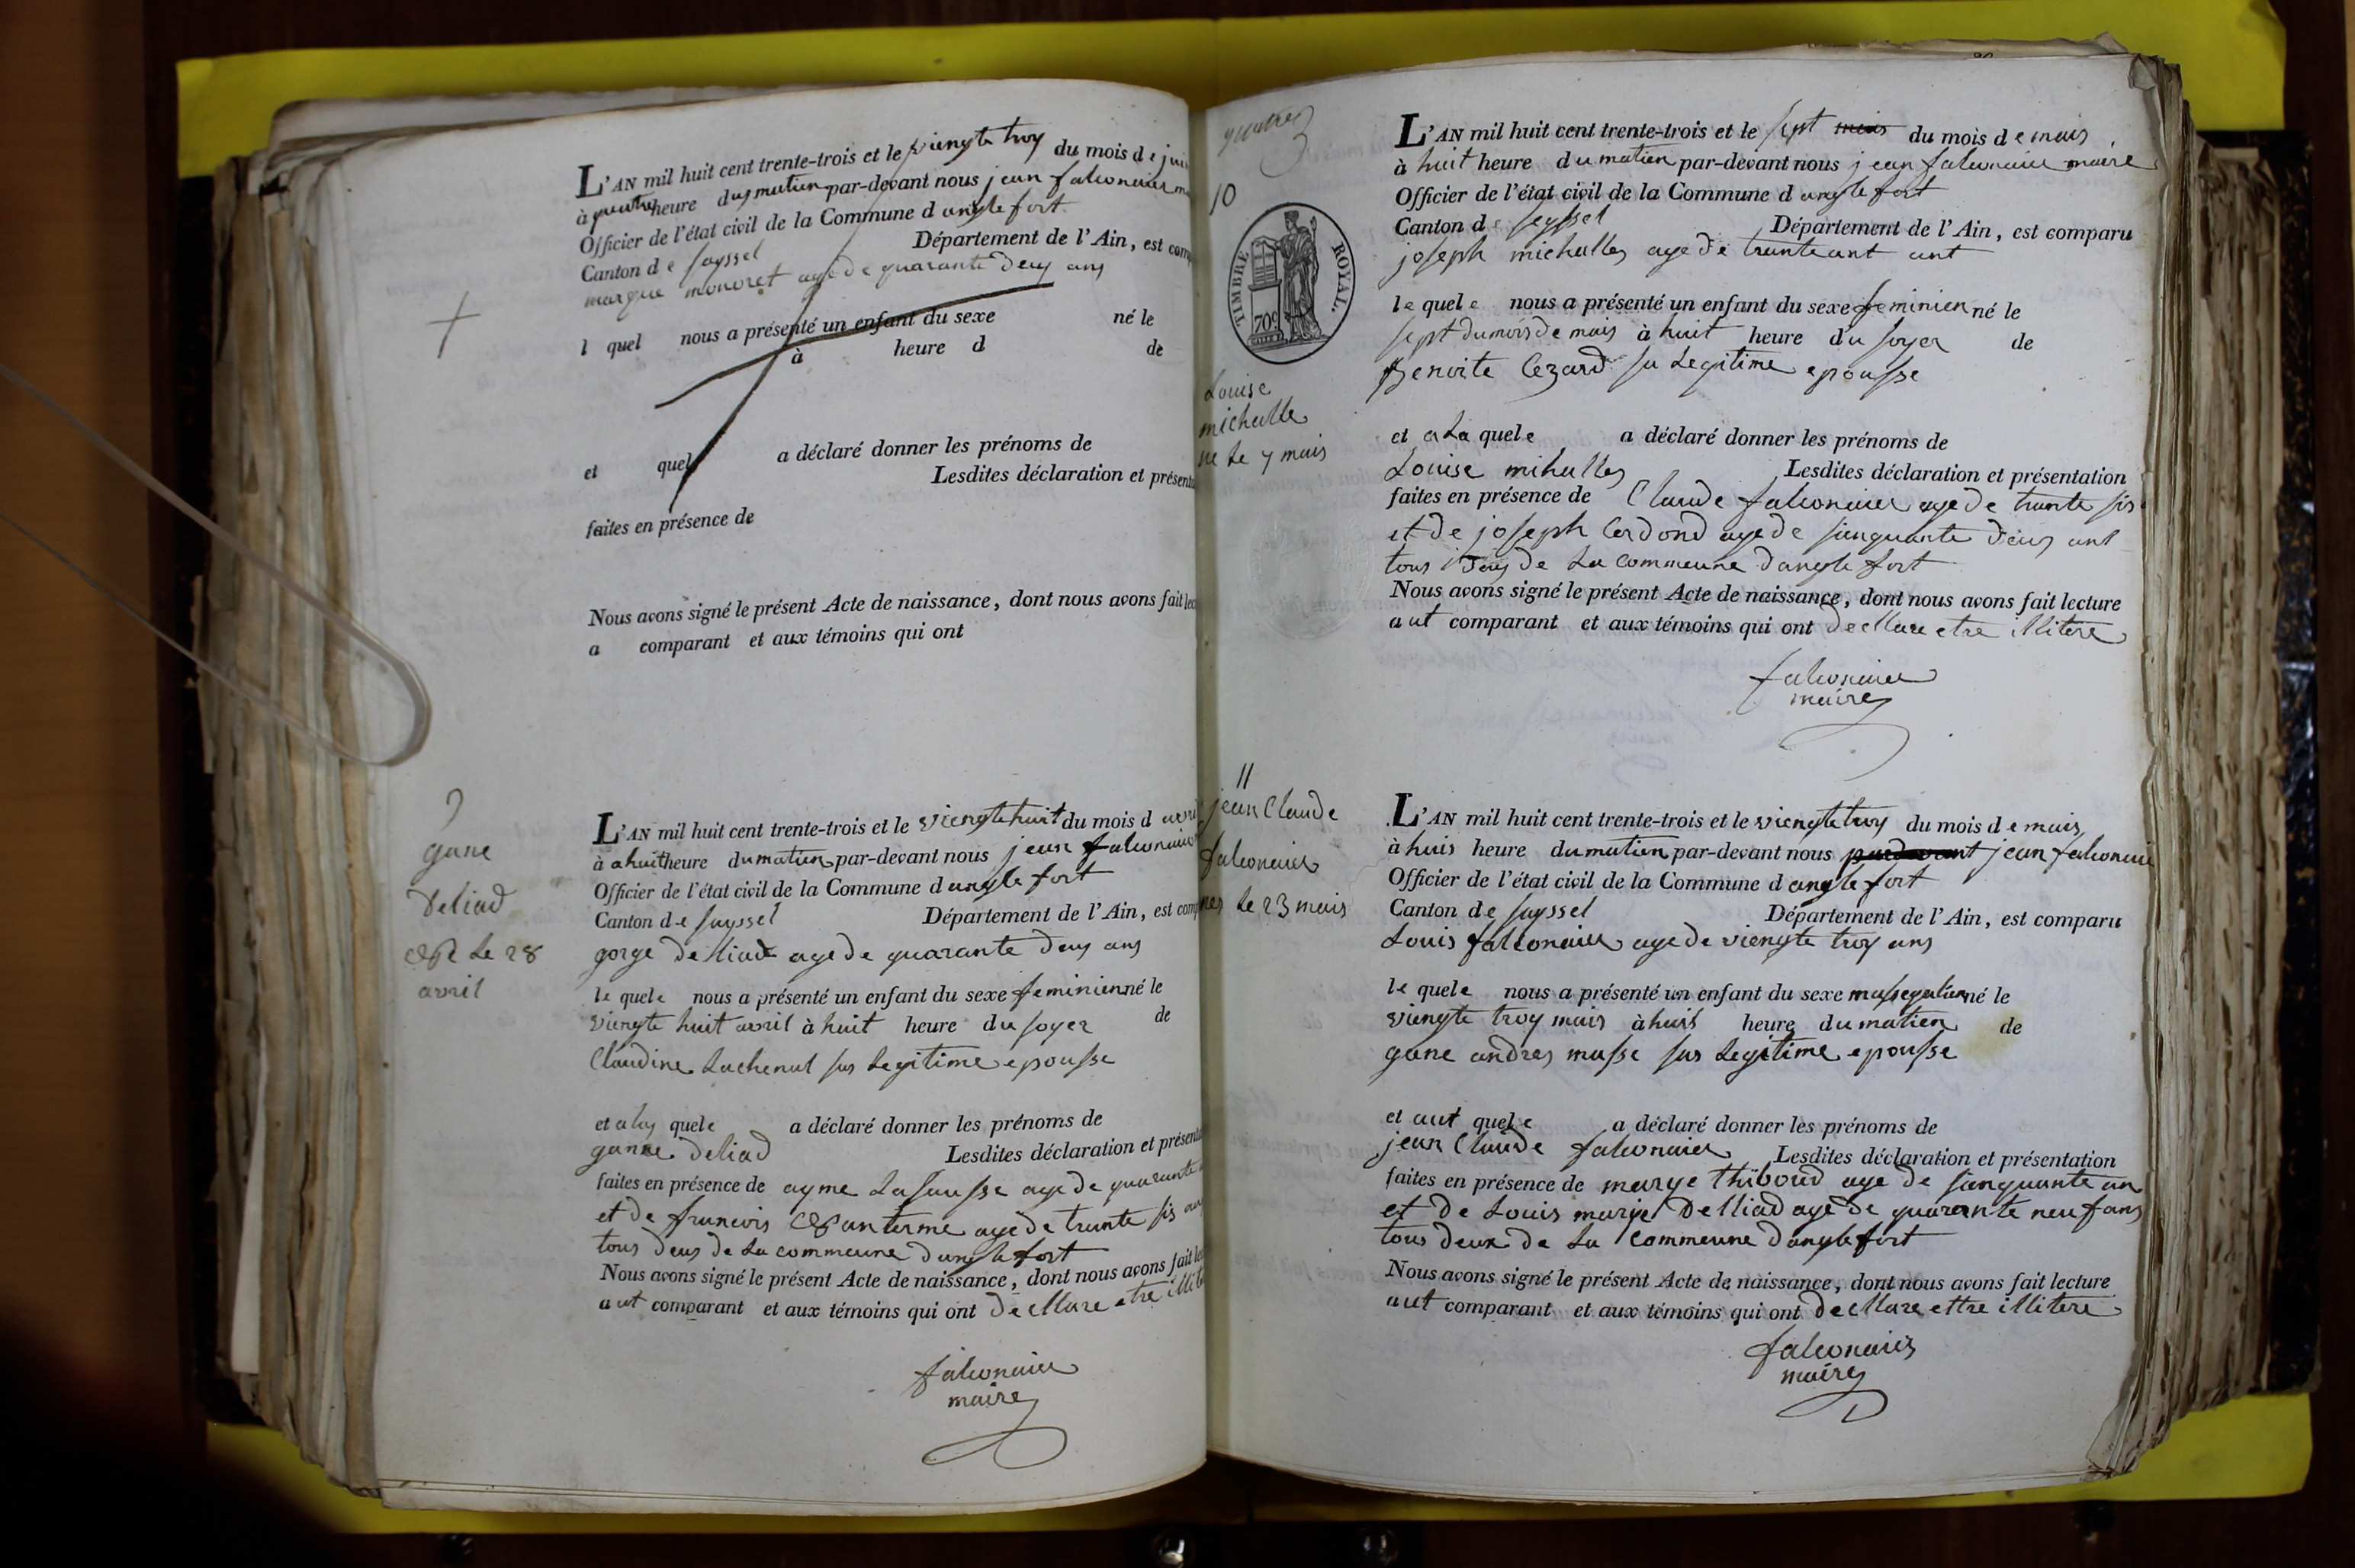 L'AN mil huit cent trente-trois et le viengte troy du mois de jui
à quatre heure du matien par-devant nous jean falconnier m
Officier de l'état civil de la Commune d anglefort
Canton de sayssel Département de l'Ain, est comp
marque monoret age de quarante deus ans
l quel nous a présenté un enfant du sexe né le
à heure d de
et quel a déclaré donner les prénoms de
Lesdites déclaration et présent
faites en présence de
Nous avons signé le présent Acte de naissance, dont nous avons fait lec
a comparant et aux témoins qui ont
9
gane
deliad
le 28
avril
L'AN mil huit cent trente-trois et le viengte huit du mois d avril
à a huit heure du matien par-devant nous jean falconaier
Officier de l'état civil de la Commune d anglefort
Canton de sayssel Département de l'Ain, est comp
gorge delliad age de quarante deus ans
le quele nous a présenté un enfant du sexe feminien né le
viengte huit avril à huit heure du soyer de
Claudine Lachenal sas legitime epousse
et a lay quele a déclaré donner les prénoms de
ganne deliad Lesdites déclaration et présent
faites en présence de ayme Lasausse age de quarante
et de francois age de trante sis an
tous deus de La commeune d anglefort
Nous avons signé le présent Acte de naissance, dont nous avons fait le
aut comparant et aux témoins qui ont decllare etre illit
falconaier
maire
quatre
10
TIMBRE ROYAL.
70c
Louise
michalle
ne le 7 mais
L'AN mil huit cent trente-trois et le sept mais du mois de mais
à huit heure du matien par-devant nous jean falconaier maire
Officier de l'état civil de la Commune d anglefort
Canton de seyssel Département de l'Ain, est comparu
joseph michalles age de trante ant
le quele nous a présenté un enfant du sexe feminien né le
sept du mois de mais à huit heure du soyer de
Benoite Cezard sa Legitime epousse
et a La quele a déclaré donner les prénoms de
Louise mihalles Lesdites déclaration et présentation
faites en présence de Claude falconaier age de trante sis
et de joseph Cerdond age de sinquante deus ant
tous deus de La commeune d anglefort
Nous avons signé le présent Acte de naissance, dont nous avons fait lecture
aut comparant et aux témoins qui ont decllare etre illitere
falconaier
maire
11
jean Claude
falconaier
nes le 23 mais
L'AN mil huit cent trente-trois et le viengte troy du mois de mais
à huis heure du matien par-devant nous pardevant jean falconaier
Officier de l'état civil de la Commune d anglefort
Canton de sayssel Département de l'Ain, est comparu
Louis falconaier age de viengte troy ans
le quele nous a présenté un enfant du sexe massequlien né le
viengte troy mais à huit heure du matien de
gane andres masse sas Legitime epousse
et aut quele a déclaré donner les prénoms de
jean Claude falconaier Lesdites déclaration et présentation
faites en présence de marye Thiboud age de sinquante an
et de Louis marye Delliad age de quarante neuf ans
tous deux de La Commeune d anglefort
Nous avons signé le présent Acte de naissance, dont nous avons fait lecture
aut comparant et aux témoins qui ont decllare ettre illitere
falconaier
maire